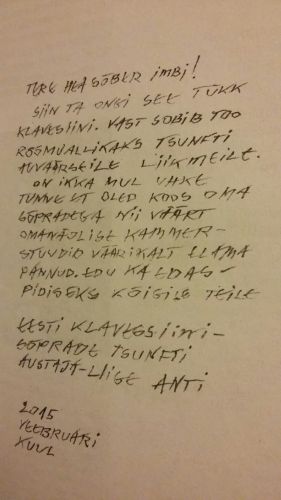 TERE HEA SÕBER IMBI!
SIIN TA ONGI SEE TÜKK
KLAVESIINI. VAST SOBIB TOO
ROSMUALLIKAKS TSUNFTI
AUVÄÄRSEILE LIIKMEILE.
ON IKKA MUL UHKE
TUNNE ET OLED KOOS OMA
SÕPRADEGA NII VÄÄRT
OMANÄOLISE KAMMER-
STUUDIO VÄÄRIKALT ELAMA
PANNUD. EDU KALDAS-
PIDISEKS KÕIGILE TEILE
EESTI KLAVESSIINI-
SÕPRADE TSUNFTI
AUSTAJA-LIIGE ANTI
2015
VEEBRUARI
KUUL